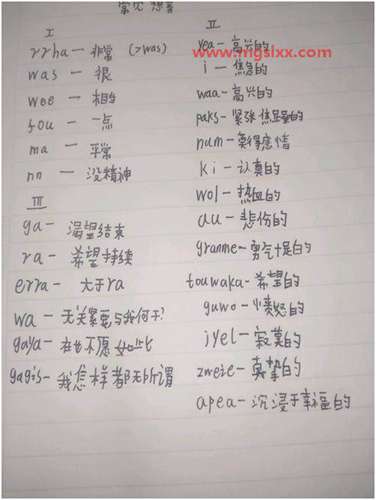 常见想音
I
rrha— 非常 (>was)
was — 很
wee — 相当
fou — 一点
ma — 平常
nn — 没精神
III
ga— 渴望结束
ra— 希望持续
erra— 大于ra
wa— 无关紧要与我何干?
gaya— 在也不愿如此
gagis— 我怎样都无所谓
II
yea— 高兴的
www.mgslxx.com
i — 焦急的
waa— 高兴的
paks— 紧张焦虑的
num— 莫得感情
ki — 认真的
wol— 热血的
au— 悲伤的
granme— 勇气十足的
touwaka—希望的
guwo —愤怒的
iyel—寂寞的
zweie— 真挚的
apea—沉浸于幸福的